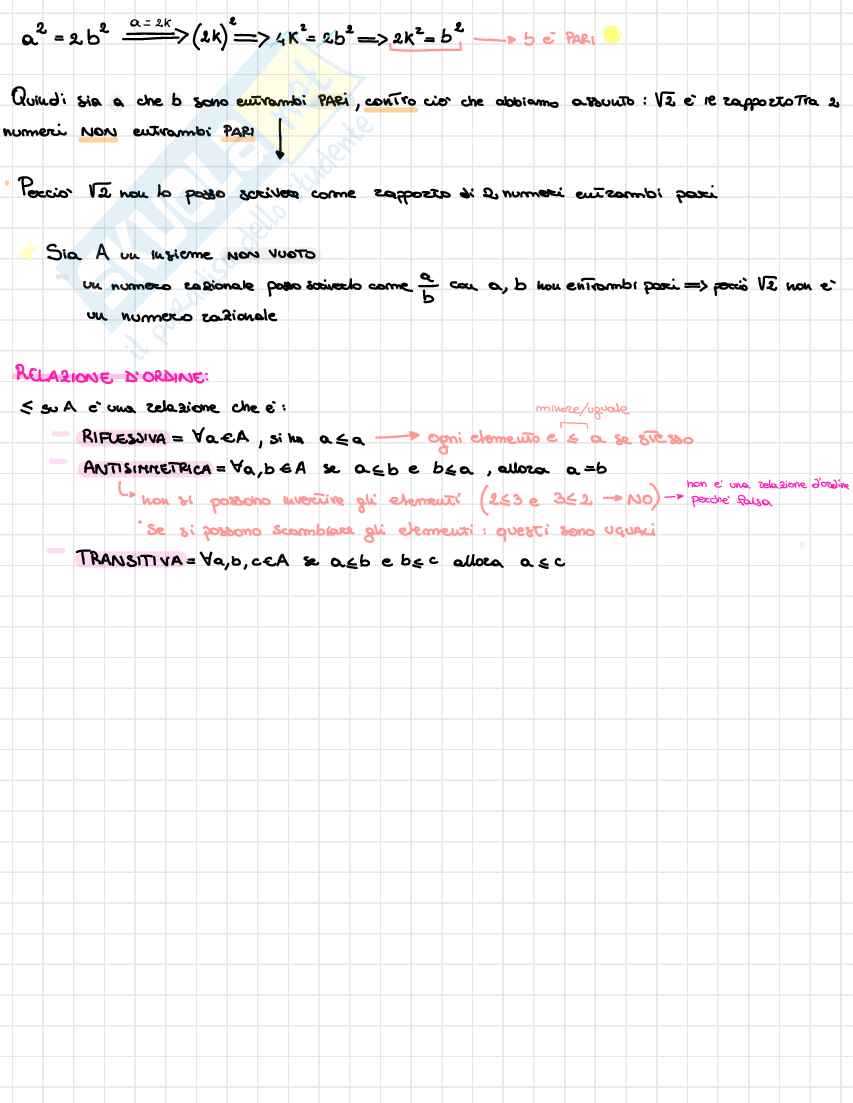 a² = 2b² ⟹ (a = 2K) (2K)² ⟹ 4K² = 2b² ⟹ 2K² = b² → b è PARI
Quindi sia a che b sono entrambi PARI, contro ciò che abbiamo assunto : √2 è il rapporto tra 2
numeri NON entrambi PARI
Perciò √2 non lo posso scrivere come rapporto di 2 numeri entrambi pari
Sia A un insieme NON VUOTO
un numero razionale posso scriverlo come a/b con a, b non entrambi pari ⟹ perciò √2 non è
un numero razionale
RELAZIONE D'ORDINE:
≤ su A è una relazione che è :
minore/uguale
RIFLESSIVA = ∀a∈A , si ha a≤a → ogni elemento è ≤ a se stesso
ANTISIMMETRICA = ∀a,b∈A se a≤b e b≤a , allora a=b
non si possono invertire gli elementi (2≤3 e 3≤2 → NO) → non è una relazione d'ordine
perché falsa
Se si possono scambiare gli elementi : questi sono uguali
TRANSITIVA = ∀a,b,c∈A se a≤b e b≤c allora a≤c
SKUOLA.net
il paradiso dello studente